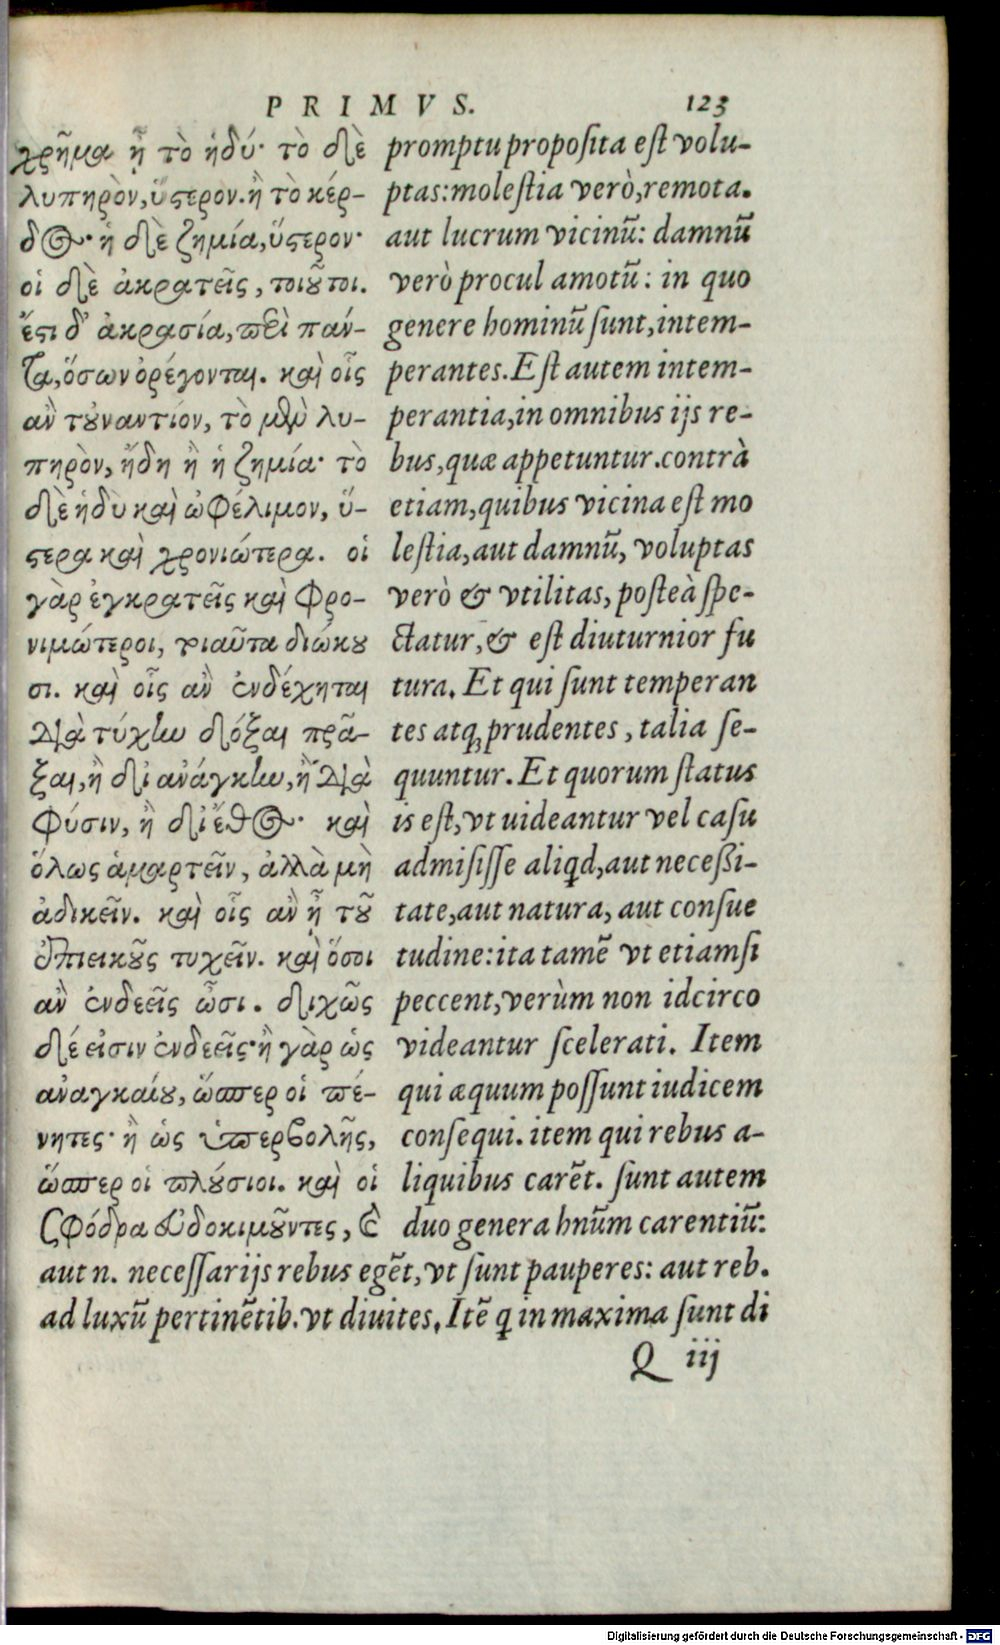 PRIMVS. 123
χρῆμα ᾖ τὸ ἡδύ· τὸ δὲ
λυπηρὸν, ὕςερον. ἢ τὸ κέρ-
δος· ἡ δὲ ζημία, ὕςερον·
οἱ δὲ ἀκρατεῖς, τοιοῦτοι.
ἔςι δ' ἀκρασία, περὶ πάν-
τα, ὅσων ὀρέγονται. καὶ οἷς
ἂν τοὐναντίον, τὸ μὲν λυ-
πηρὸν, ἤδη ἢ ἡ ζημία· τὸ
δὲ ἡδὺ καὶ ὠφέλιμον, ὕ-
ςερα καὶ χρονιώτερα. οἱ
γὰρ ἐγκρατεῖς καὶ φρο-
νιμώτεροι, τοιαῦτα διώκου
σι. καὶ οἷς ἂν ἐνδέχηται
διὰ τύχην δόξαι πρᾶ-
ξαι, ἢ δι ἀνάγκην, ἢ διὰ
φύσιν, ἢ δι ἔθος· καὶ
ὅλως ἁμαρτεῖν, ἀλλὰ μὴ
ἀδικεῖν. καὶ οἷς ἂν ᾖ τοῦ
ἐπιεικοῦς τυχεῖν. καὶ ὅσοι
ἂν ἐνδεεῖς ὦσι. διχῶς
δέ εἰσιν ἐνδεεῖς· ἢ γὰρ ὡς
ἀναγκαίου, ὥσπερ οἱ πέ-
νητες· ἢ ὡς ὑπερβολῆς,
ὥσπερ οἱ πλούσιοι. καὶ οἱ
σφόδρα εὐδοκιμοῦντες, καὶ
promptu proposita est volu-
ptas: molestia verò, remota.
aut lucrum vicinũ: damnũ
verò procul amotũ: in quo
genere hominũ sunt, intem-
perantes. Est autem intem-
perantia, in omnibus ijs re-
bus, quæ appetuntur. contrà
etiam, quibus vicina est mo
lestia, aut damnũ, voluptas
verò & vtilitas, posteà spe-
ctatur, & est diuturnior fu
tura. Et qui sunt temperan
tes atq; prudentes, talia se-
quuntur. Et quorum status
is est, vt uideantur vel casu
admisisse aliqd, aut necessi-
tate, aut natura, aut consue
tudine: ita tamẽ vt etiamsi
peccent, verùm non idcirco
videantur scelerati. Item
qui æquum possunt iudicem
consequi. item qui rebus a-
liquibus carẽt. sunt autem
duo genera hnũm carentiũ:
aut n. necessarijs rebus egẽt, vt sunt pauperes: aut reb.
ad luxũ pertinẽtib. vt diuites. Itẽ q in maxima sunt di
Q iij
Digitalisierung gefördert durch die Deutsche Forschungsgemeinschaft - DFG